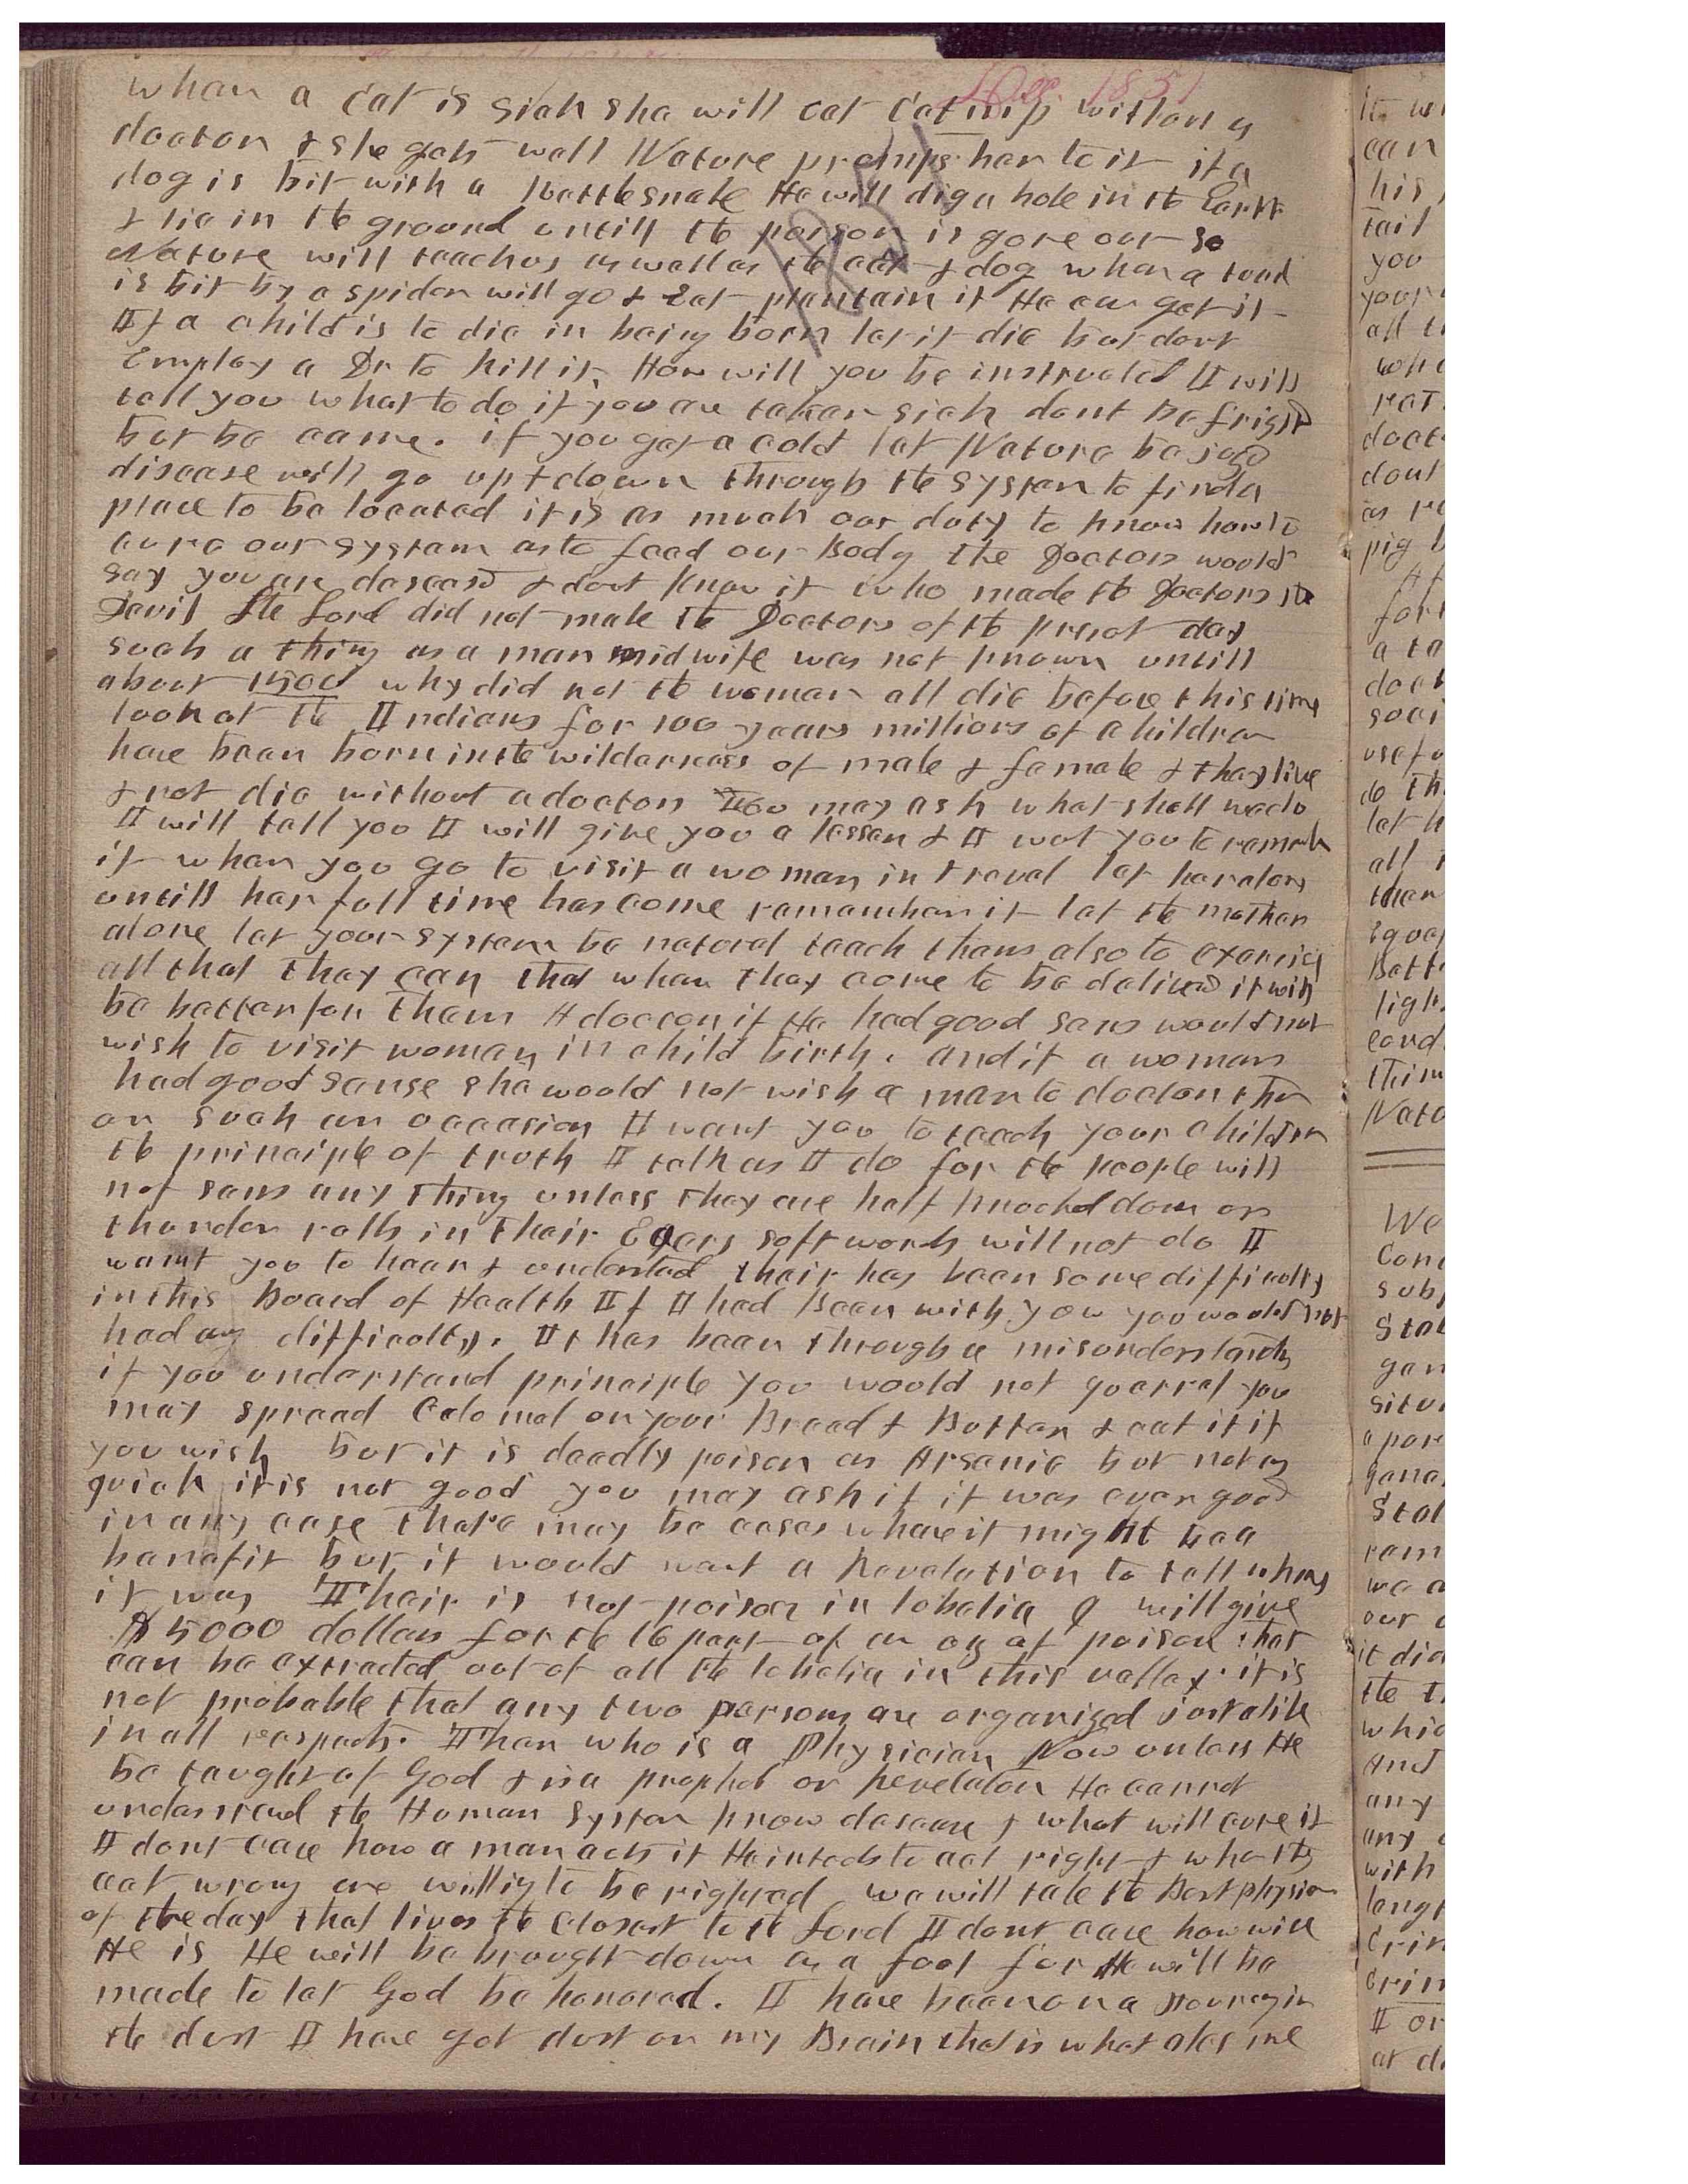 [Dec. 1851
1851
when a cat is sick she will eat catnip without a
doctor & she gets well Nature promps her to it if a
dog is bit with a Rattlesnake He will dig a hole in the Earth
& lie in the ground untill the poison is gone out so
Nature will teach us as well as the cat & dog when a toad
is bit by a spider will go & Eat plantain if He can get it
If a child is to die in being born let it die but dont
Employ a Dr to kill it. How will you be instructed I will
tell you what to do if you are taken sick dont be frigh
but be came. if you get a cold let Nature be
disease will go up & down through the system to find a
place to be located it is as much our duty to know how to
cure our system as to feed our Body the Doctors would
say you are deseased & dont know it who made the Doctors the
Devil the Lord did not make the Doctors of the presat day
such a thing as a man midwife was not known untill
about 1500 why did not the women all die before this time
look at the Indians for 100 years millions of children
have been born in the wilderness of male & female & they live
& not die without a doctor You may ask what shall we do
I will tell you I will give you a lesson & I wat you to remember
it when you go to visit a woman in traval let her alone
untill her full time has come rememher it let the mother
alone let your system be natural teach them also to exercise
all that they can that when they come to be delivered it will
be better for them A doctor if He had good sens would not
wish to visit woman in child birth. and if a woman
had good sense she would not wish a man to doctor
on such an occasion I want you to teach your children
the principle of truth I talk as I do for the people will
not sens any thing unless they are half knocked down or
thunder rolls in their Eears soft words will not do I
want you to hear & understad their has been some difficulty
in this Board of Health If I had been with you you would not
had any difficulty. It has been through a misunderstanding
if you understand principle you would not quarrel you
may spread Calomel on your Bread & Butter & eat it if
you wish but it is deadly poison as Arsenic but not as
quick it is not good you may ask if it was ever good
in any case there may be cases where it might be a
benefit but it would want a Revelation to tell when
it was Their is not poison in lobelia I will give
$5000 dollars for the 16 part of an oz of poison that
can be extracted out of all the lobelia in this valley. it is
not probable that any two persons are organized just alike
in all respects. Then who is a Physician Now unless He
be taught of God & is a prophet or Revelator He cannot
understand the Human System know desease & what will cure it
I dont care how a man acts if He inteds to act right & who
act wrong are willig to be righted we will take the Best physian
of the day that lives the closest to the Lord I dont care how wise
He is He will be brought down as a fool for He will be
made to let God be honored. I have been on a Journey in
the dust I have got dust on my Brain that is what ales me